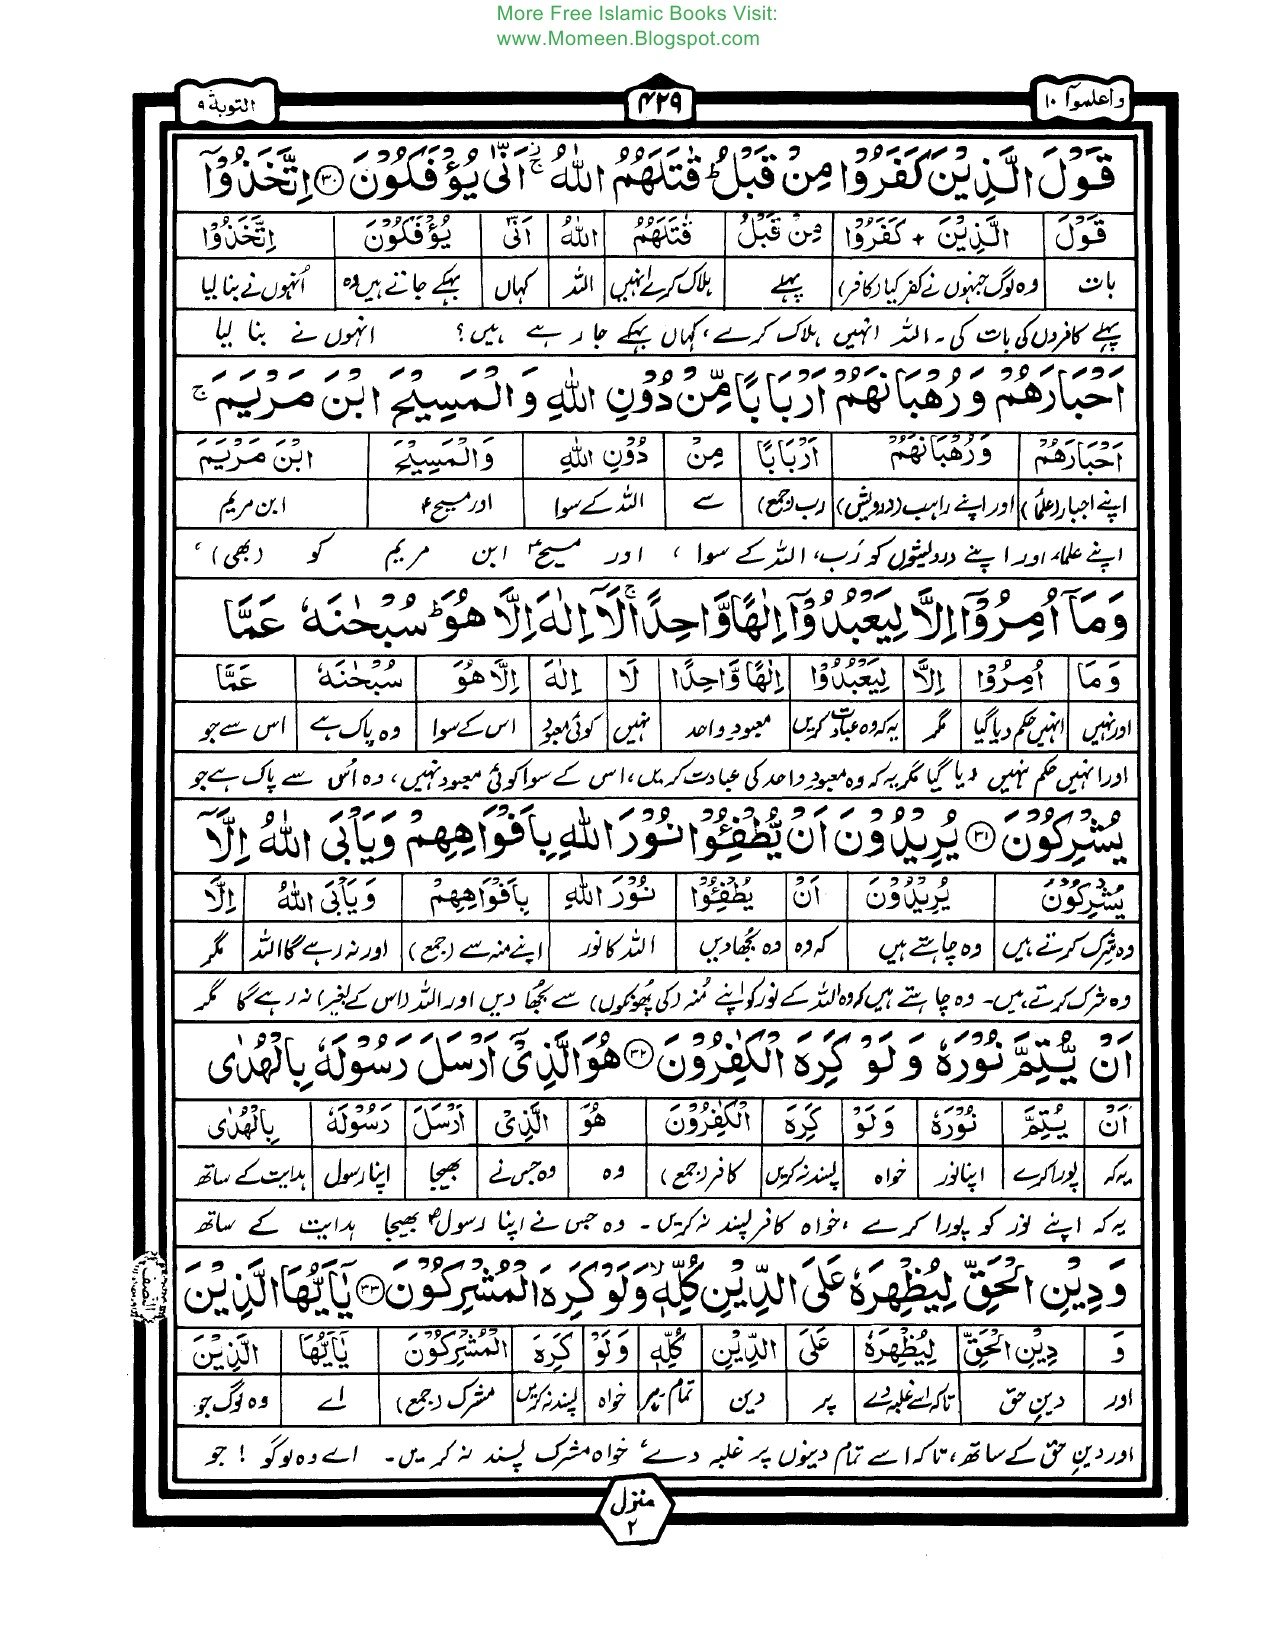 More Free Islamic Books Visit:
www.Momeen.Blogspot.com
واعلموٓا ١٠ ۴۲۹ التوبة ٩
قَوْلَ الَّذِيْنَ كَفَرُوْا مِنْ قَبْلُ ؕ قٰتَلَهُمُ اللّٰهُ ۚ اَنّٰى يُؤْفَكُوْنَ ۝۳۰ اِتَّخَذُوْٓا
قَوْلَ الَّذِيْنَ + كَفَرُوْا مِنْ قَبْلُ قٰتَلَهُمُ اللّٰهُ اَنّٰى يُؤْفَكُوْنَ اِتَّخَذُوْٓا
بات وہ لوگ جنہوں نے کفر کیا (کافر) پہلے ہلاک کرے انہیں اللہ کہاں بہکے جاتے ہیں وہ اُنہوں نے بنا لیا
پہلے کافروں کی بات کی۔ اللہ انہیں ہلاک کرے، کہاں بہکے جا رہے ہیں؟ انہوں نے بنا لیا
اَحْبَارَهُمْ وَرُهْبَانَهُمْ اَرْبَابًا مِّنْ دُوْنِ اللّٰهِ وَالْمَسِيْحَ ابْنَ مَرْيَمَ ۚ
اَحْبَارَهُمْ وَرُهْبَانَهُمْ اَرْبَابًا مِنْ دُوْنِ اللّٰهِ وَالْمَسِيْحَ ابْنَ مَرْيَمَ
اپنے احبار (علماء) اور اپنے راہب (درویش) رب (جمع) سے اللہ کے سوا اور مسیحؑ ابن مریم
اپنے علماء اور اپنے درویشوں کو رَب، اللہ کے سوا ، اور مسیحؑ ابن مریم کو (بھی) ،
وَمَآ اُمِرُوْٓا اِلَّا لِيَعْبُدُوْٓا اِلٰهًا وَّاحِدًا ۚ لَآ اِلٰهَ اِلَّا هُوَ ؕ سُبْحٰنَهٗ عَمَّا
وَمَا اُمِرُوْٓا اِلَّا لِيَعْبُدُوْا اِلٰهًا وَّاحِدًا لَا اِلٰهَ اِلَّا هُوَ سُبْحٰنَهٗ عَمَّا
اور نہیں انہیں حکم دیا گیا مگر یہ کہ وہ عبادت کریں معبودِ واحد نہیں کوئی معبود اس کے سوا وہ پاک ہے اس سے جو
اور انہیں حکم نہیں دیا گیا مگر یہ کہ وہ معبودِ واحد کی عبادت کریں، اس کے سوا کوئی معبود نہیں، وہ اُس سے پاک ہے جو
يُشْرِكُوْنَ ۝۳۱ يُرِيْدُوْنَ اَنْ يُّطْفِئُوْا نُوْرَ اللّٰهِ بِاَفْوَاهِهِمْ وَيَاْبَى اللّٰهُ اِلَّآ
يُشْرِكُوْنَ يُرِيْدُوْنَ اَنْ يُطْفِئُوْا نُوْرَ اللّٰهِ بِاَفْوَاهِهِمْ وَيَاْبَى اللّٰهُ اِلَّآ
وہ شرک کرتے ہیں وہ چاہتے ہیں کہ وہ وہ بجھا دیں اللہ کا نور اپنے منہ سے (جمع) اور نہ رہے گا اللہ مگر
وہ شرک کرتے ہیں۔ وہ چاہتے ہیں کہ وہ اللہ کے نور کو اپنے مُنہ (کی پھونکوں) سے بُجھا دیں اور اللہ (اس کے بغیر) نہ رہے گا مگر
اَنْ يُّتِمَّ نُوْرَهٗ وَلَوْ كَرِهَ الْكٰفِرُوْنَ ۝۳۲ هُوَ الَّذِيْٓ اَرْسَلَ رَسُوْلَهٗ بِالْهُدٰى
اَنْ يُتِمَّ نُوْرَهٗ وَلَوْ كَرِهَ الْكٰفِرُوْنَ هُوَ الَّذِيْ اَرْسَلَ رَسُوْلَهٗ بِالْهُدٰى
یہ کہ پورا کرے اپنا نور خواہ پسند نہ کریں کافر (جمع) وہ وہ جس نے بھیجا اپنا رسول ہدایت کے ساتھ
یہ کہ اپنے نور کو پورا کرے ، خواہ کافر پسند نہ کریں۔ وہ جس نے اپنا رسولؐ بھیجا ہدایت کے ساتھ
وَدِيْنِ الْحَقِّ لِيُظْهِرَهٗ عَلَى الدِّيْنِ كُلِّهٖ ۙ وَلَوْ كَرِهَ الْمُشْرِكُوْنَ ۝۳۳ يٰٓاَيُّهَا الَّذِيْنَ
وَ دِيْنِ الْحَقِّ لِيُظْهِرَهٗ عَلَى الدِّيْنِ كُلِّهٖ وَلَوْ كَرِهَ الْمُشْرِكُوْنَ يٰٓاَيُّهَا الَّذِيْنَ
اور دینِ حق تاکہ اسے غلبہ دے پر دین تمام پر خواہ پسند نہ کریں مشرک (جمع) اے وہ لوگ جو
اور دینِ حق کے ساتھ، تاکہ اسے تمام دینوں پر غلبہ دے ، خواہ مشرک پسند نہ کریں۔ اے وہ لوگو ! جو
النصف
منزل ۲